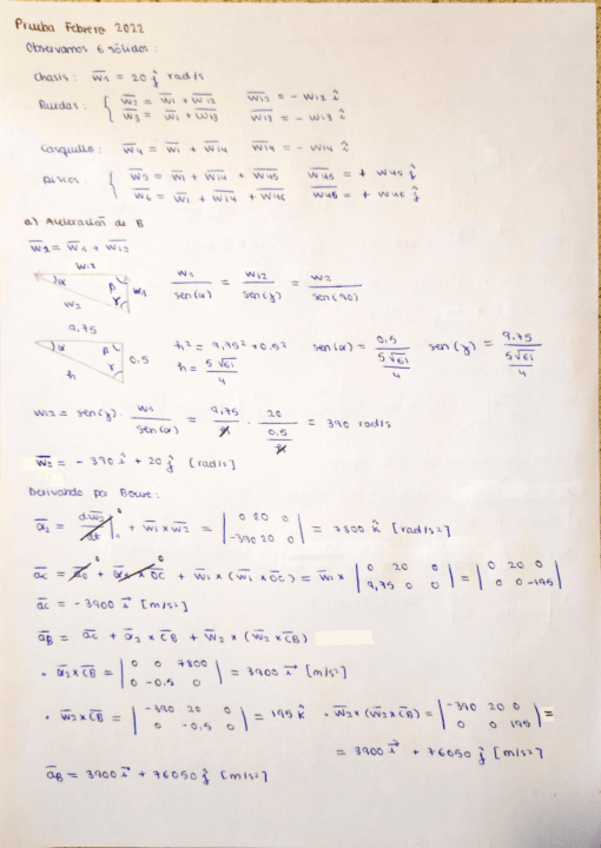 Prueba Febrero 2022
Observamos 6 sólidos :
Chasis : w̄₁ = 20 ĵ rad/s
Ruedas : { w̄₂ = w̄₁ + w̄₁₂   w̄₁₂ = - w₁₂ î
w̄₃ = w̄₁ + w̄₁₃   w̄₁₃ = - w₁₃ î
Casquillo : w̄₄ = w̄₁ + w̄₁₄   w̄₁₄ = - w₁₄ î
Discos : { w̄₅ = w̄₁ + w̄₁₄ + w̄₄₅   w̄₄₅ = + w₄₅ ĵ
w̄₆ = w̄₁ + w̄₁₄ + w̄₄₆   w̄₄₆ = + w₄₆ ĵ
a) Aceleración de B
w̄₂ = w̄₁ + w̄₁₂
w₁₂ α β w₁ γ w₂
w₁ / sen(α) = w₁₂ / sen(γ) = w₂ / sen(90)
9,75 α β 0,5 γ h
h² = 9,75² + 0,5²   sen(α) = 0,5 / (5√61 / 4)   sen(γ) = 9,75 / (5√61 / 4)
h = 5√61 / 4
w₁₂ = sen(γ) · w₁ / sen(α) = 9,75 / h · 20 / (0,5 / h) = 390 rad/s
w̄₂ = - 390 î + 20 ĵ [rad/s]
Derivando por Boure :
ᾱ₂ = dw̄₂/dt |₁ ⁰ + w̄₁ x w̄₂ = | 0 20 0 / -390 20 0 | = 7800 k̂ [rad/s²]
āc = ā₀ ⁰ + ᾱ₁ x OC ⁰ + w̄₁ x (w̄₁ x OC) = w̄₁ x | 0 20 0 / 9,75 0 0 | = | 0 20 0 / 0 0 -195 |
āc = - 3900 i⃗ [m/s²]
āB = āc + ᾱ₂ x CB + w̄₂ x (w̄₂ x CB)
· ᾱ₂ x CB = | 0 0 7800 / 0 -0.5 0 | = 3900 i⃗ [m/s²]
· w̄₂ x CB = | -390 20 0 / 0 -0,5 0 | = 195 k̂   · w̄₂ x (w̄₂ x CB) = | -390 20 0 / 0 0 195 | =
= 3900 i⃗ + 76050 ĵ [m/s²]
āB = 3900 i⃗ + 76050 ĵ [m/s²]